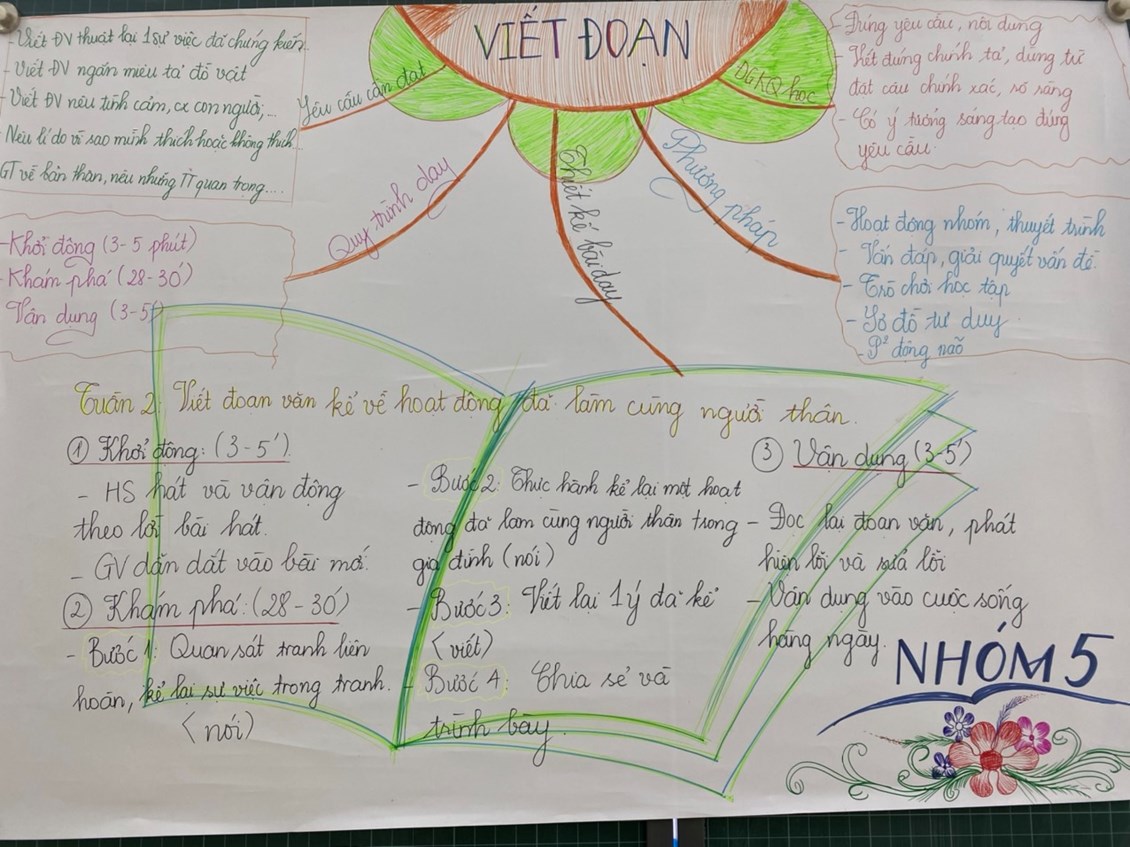 VIẾT ĐOẠN
Yêu cầu cần đạt
- Viết ĐV thuật lại 1 sự việc đã chứng kiến.
- Viết ĐV ngắn miêu tả đồ vật
- Viết ĐV nêu tình cảm, cx con người,...
Nêu lí do vì sao mình thích hoặc không thích
GT về bản thân, nêu những TT quan trọng....
Quy trình dạy
- Khởi động (3-5 phút)
- Khám phá (28-30')
Vận dụng (3-5')
Thiết kế bài dạy
Phương pháp
- Hoạt động nhóm, thuyết trình
- Vấn đáp, giải quyết vấn đề.
- Trò chơi học tập
- Sơ đồ tư duy.
- P² động não
ĐGKQ học
- Đúng yêu cầu, nội dung
- Viết đúng chính tả, dùng từ
đặt câu chính xác, rõ ràng
- Có ý tưởng sáng tạo đúng
yêu cầu.
Tuần 2: Viết đoạn văn kể về hoạt động đã làm cùng người thân.
① Khởi động: (3-5')
- HS hát và vận động
theo lời bài hát.
- GV dẫn dắt vào bài mới.
② Khám phá: (28-30')
- Bước 1: Quan sát tranh liên
hoàn, kể lại sự việc trong tranh.
(nói)
- Bước 2: Thực hành kể lại một hoạt
động đã làm cùng người thân trong
gia đình (nói)
- Bước 3: Viết lại 1 ý đã kể
(viết)
- Bước 4: Chia sẻ và
trình bày.
③ Vận dụng (3-5')
- Đọc lại đoạn văn, phát
hiện lỗi và sửa lỗi
- Vận dụng vào cuộc sống
hằng ngày.
NHÓM 5